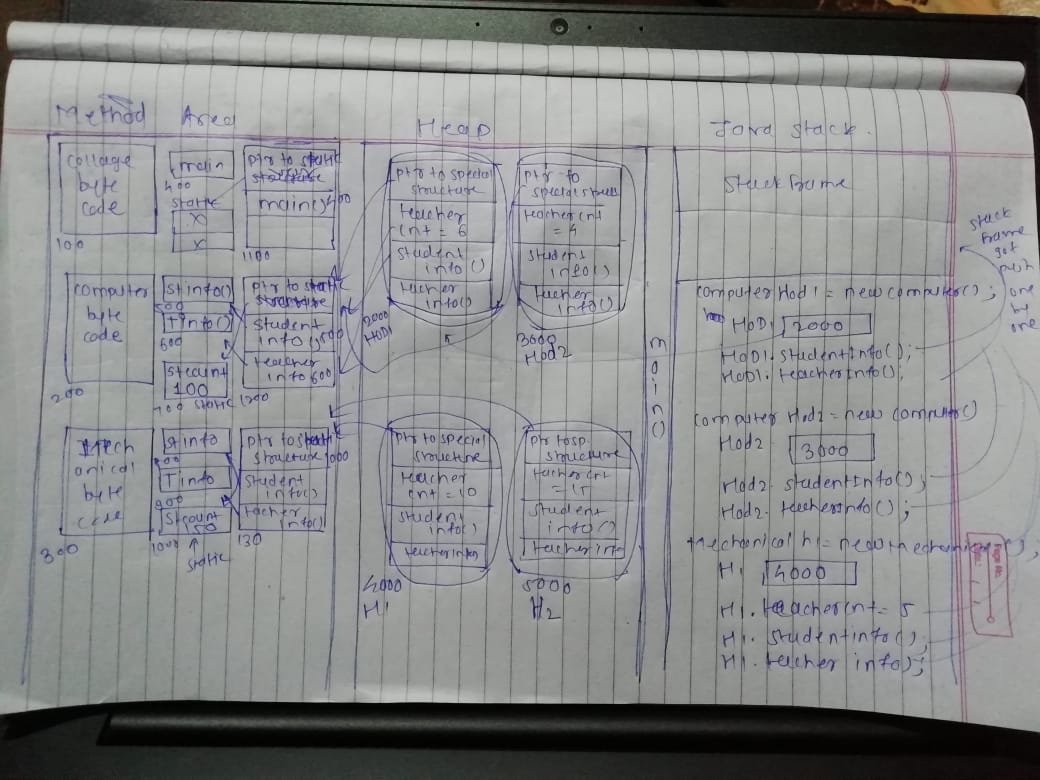 Method Area
collage
byte
code
100
main
400
static
X
X
ptr to static
structure
main() 400
1100
computer
byte
code
200
stinfo()
500
Tinfo()
600
stcount
100
700 static
ptr to static
structure
student
info() 500
teacher
info 600
1200
Mech
anical
byte
code
300
st info
800
Tinfo
900
stcount
50
1000
static
ptr to static
structure 1000
student
info()
tacher
info()
130
Heap
ptr to special
structure
teacher
cnt = 6
student
info()
tucher
info()
2000
HOD1
ptr to
special struct
teacher cnt
= 4
student
info()
tucher
info()
3000
Hod2
ptr to special
structure
teacher
cnt = 10
student
info()
teacher info
4000
H1
ptr to sp.
structure
teacher cnt
= 15
student
info()
teacher info
5000
H2
main()
Java stack.
Stack frame
computer Hod1 = new computer();
HoD1 2000
HoD1. studentinfo();
HoD1. teacherinfo();
computer Hod2 = new computer()
Hod2
3000
Hod2. studentinfo();
Hod2. teacherinfo();
Mechanical h1 = new mechanical();
H1 4000
H1. teachercnt = 5
H1. studentinfo();
H1. teacher info);
stack
frame
got
push
one
by
one